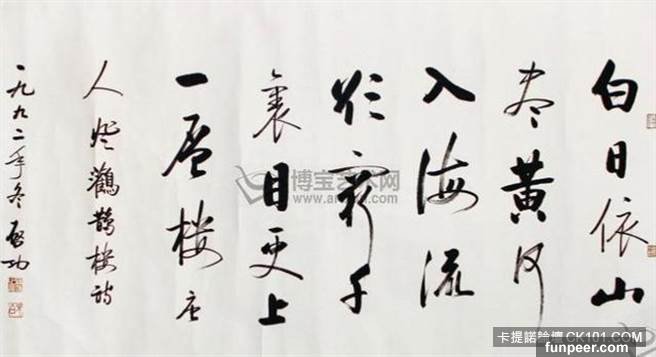 白日依山
盡黄河
入海流
欲窮千
裏目更上
一層楼唐
人登鸛鵲楼詩
一九九二年冬啟功
博宝艺术网
卡提諾論壇 CK101.COM
funpeer.com